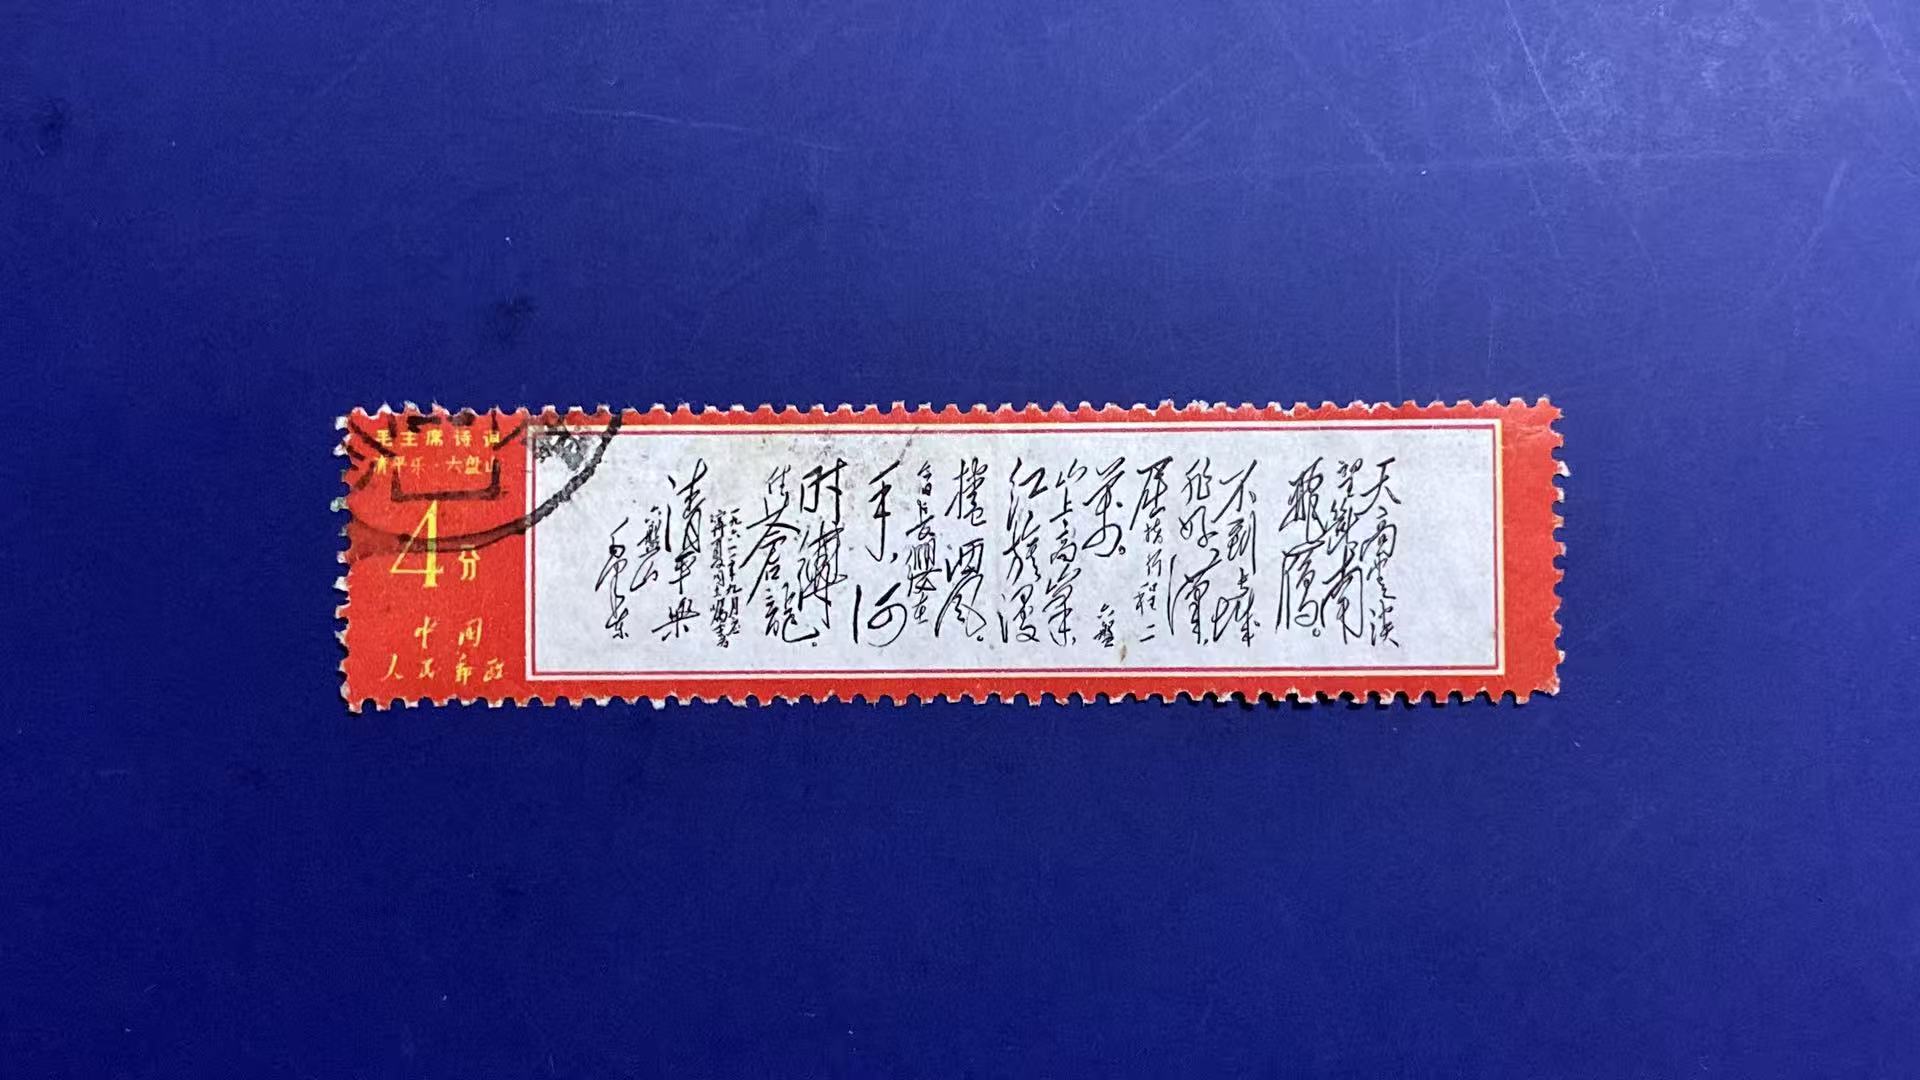 毛主席诗词
清平乐·六盘山
4分
中国
人民邮政
天高雲淡
望断南
飛雁。
不到长城
非好漢,
屈指行程二
萬。六盤
山上高峯,
红旗漫
捲西风。
今日長纓在
手,何
时縛
住蒼龍。
一九六一年九月应
寧夏同志嘱書
清平樂
六盤山
毛泽东